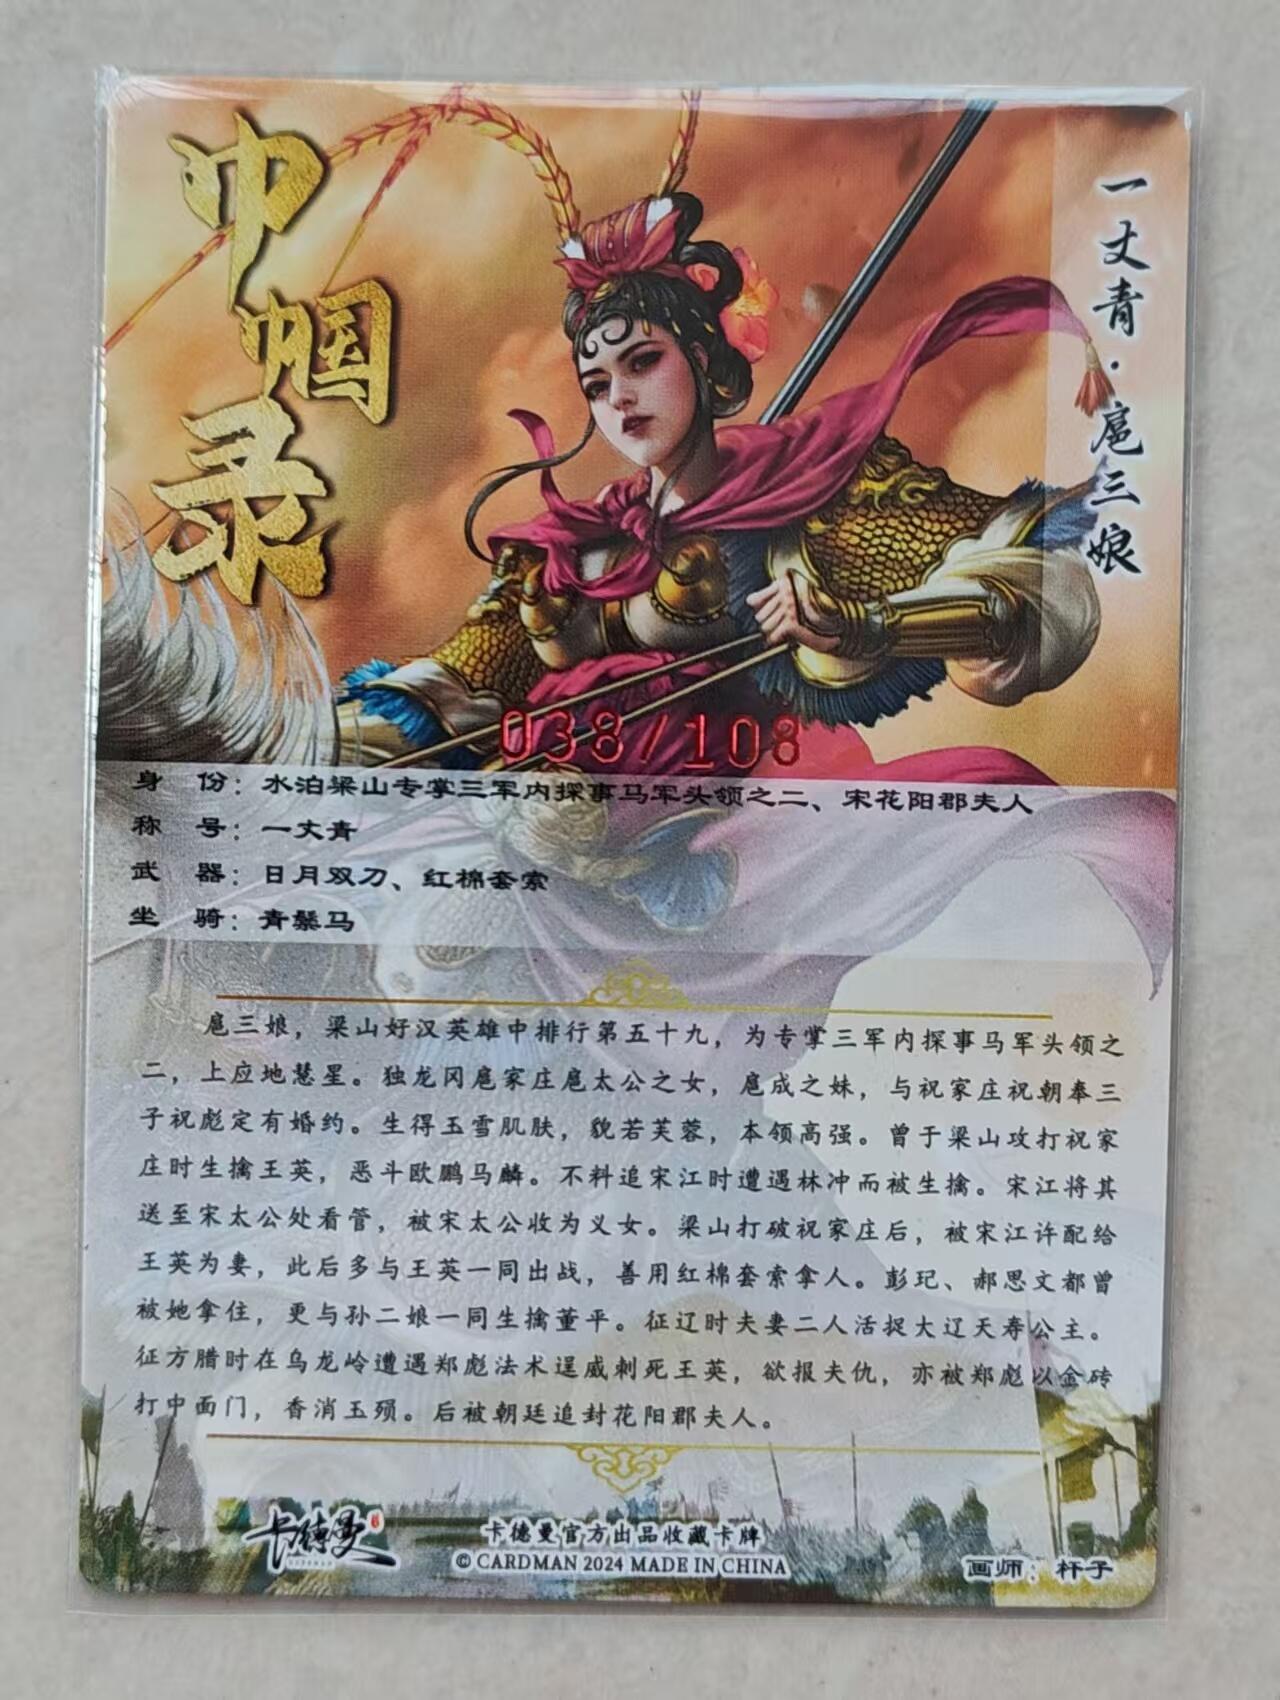 巾帼录
一丈青·扈三娘
038/108
身 份：水泊梁山专掌三军内探事马军头领之二、宋花阳郡夫人
称 号：一丈青
武 器：日月双刀、红棉套索
坐 骑：青鬃马
扈三娘，梁山好汉英雄中排行第五十九，为专掌三军内探事马军头领之
二，上应地慧星。独龙冈扈家庄扈太公之女，扈成之妹，与祝家庄祝朝奉三
子祝彪定有婚约。生得玉雪肌肤，貌若芙蓉，本领高强。曾于梁山攻打祝家
庄时生擒王英，恶斗欧鹏马麟。不料追宋江时遭遇林冲而被生擒。宋江将其
送至宋太公处看管，被宋太公收为义女。梁山打破祝家庄后，被宋江许配给
王英为妻，此后多与王英一同出战，善用红棉套索拿人。彭玘、郝思文都曾
被她拿住，更与孙二娘一同生擒董平。征辽时夫妻二人活捉大辽天寿公主。
征方腊时在乌龙岭遭遇郑彪法术逞威刺死王英，欲报夫仇，亦被郑彪以金砖
打中面门，香消玉殒。后被朝廷追封花阳郡夫人。
卡德曼
卡德曼官方出品收藏卡牌
© CARDMAN 2024 MADE IN CHINA
画师：杆子